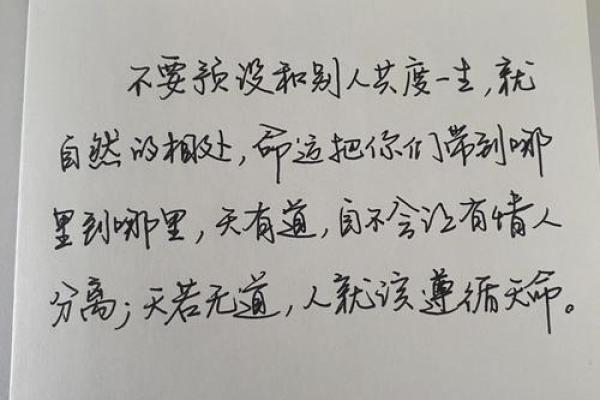 不要预设和别人共度一生,就
自然的相处,命运把你们带到哪
里到哪里,天有道,自不会让有情人
分离;天若无道,人就该遵循天命。